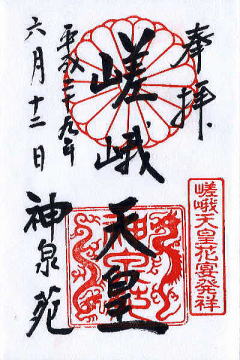 奉拝
嵯峨天皇
平成二十九年
六月十二日
神泉苑
嵯峨天皇花宴発祥